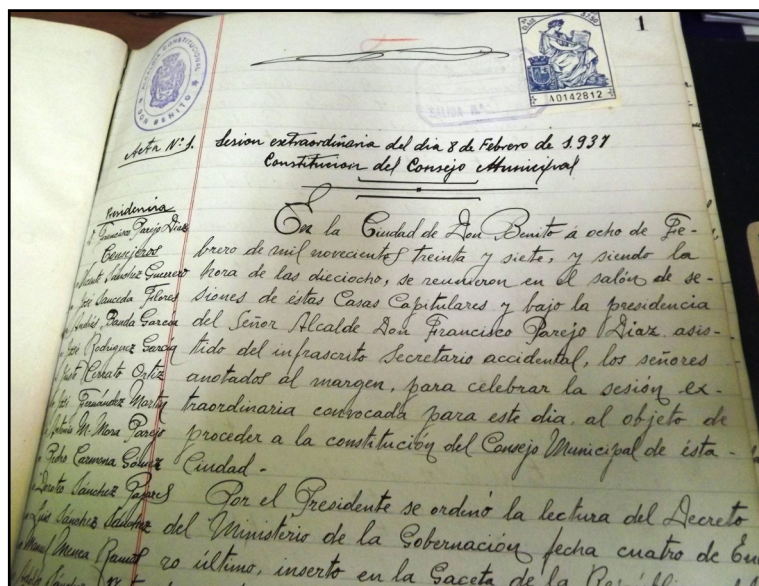 1
ALCALDIA CONSTITUCIONAL
DON BENITO
A0142812
SALIDA N.º
Acta Nº 1.
Sesion extraordinaria del dia 8 de Febrero de 1.937
Constitucion del Consejo Municipal
Presidencia
D. Francisco Parejo Diaz
Consejeros
Vicente Sánchez Guerrero
José Sauceda Flores
Andrés Banda Garcia
José Rodriguez Garcia
Justo Cerrato Ortiz
Fernandez Martin
Antonio M. Mora Parejo
Pedro Carmona Gómez
Doroteo Sánchez Pajares
Luis Sánchez
Manuel Menea Ramos
Sánchez
En la Ciudad de Don Benito á ocho de Fe-
brero de mil novecientos treinta y siete, y siendo la
hora de las dieciocho, se reunieron en el salón de se-
siones de éstas Casas Capitulares y bajo la presidencia
del Señor Alcalde Don Francisco Parejo Diaz. asis-
tido del infrascrito Secretario accidental, los señores
anotados al margen, para celebrar la sesión ex-
traordinaria convocada para este dia, al objeto de
proceder a la constitución del Consejo Municipal de ésta
Ciudad.-
Por el Presidente se ordenó la lectura del Decreto
del Ministério de la Gobernación fecha cuatro de En
ro último, inserto en la Gaceta de la República